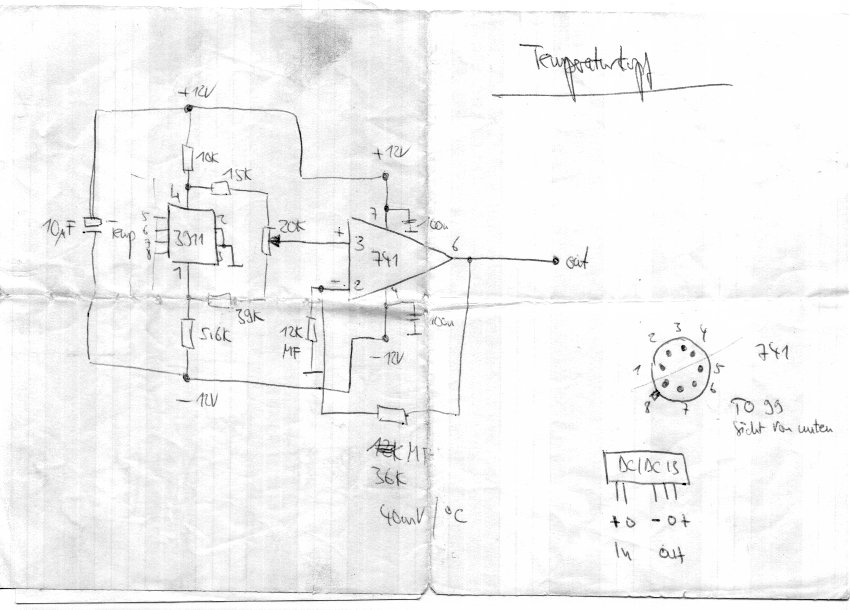 Temperaturkopf
+12V
10K
15K
+12V
4
7
100n
10µF
Temp
5
6
7
8
3911
2
3
20K
+
3
741
6
out
1
-
2
4
39K
100n
5,6K
12K
MF
-12V
-12V
MF
36K
40mV/°C
1
2
3
4
5
6
7
8
741
TO 99
Sicht von unten
DC/DC 15
+ 0 - 0 +
In out